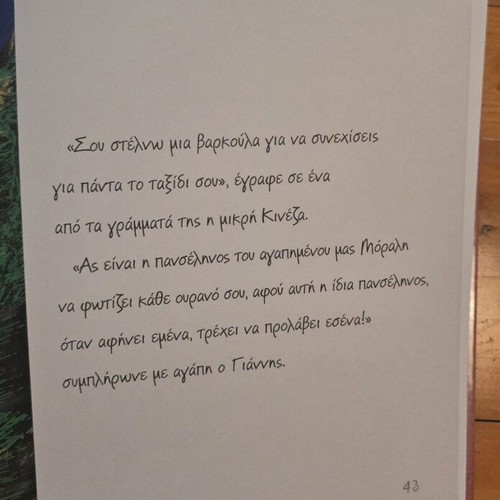 «Σου στέλνω μια βαρκούλα για να συνεχίσεις
για πάντα το ταξίδι σου», έγραφε σε ένα
από τα γράμματά της η μικρή Κινέζα.
«Ας είναι η πανσέληνος του αγαπημένου μας Μόραλη
να φωτίζει κάθε ουρανό σου, αφού αυτή η ίδια πανσέληνος,
όταν αφήνει εμένα, τρέχει να προλάβει εσένα!»
συμπλήρωνε με αγάπη ο Γιάννης.
43